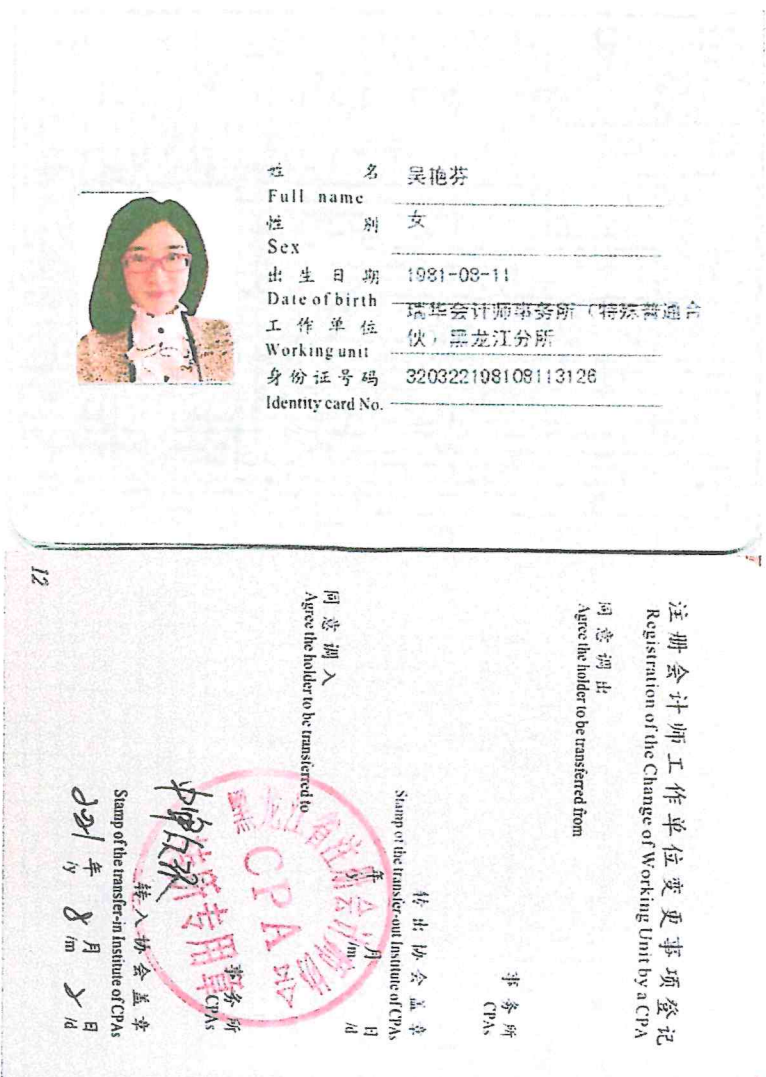 姓 名 吴艳芬
Full name
性 别 女
Sex
出 生 日 期 1981-08-11
Date of birth
工 作 单 位 瑞华会计师事务所（特殊普通合
伙）黑龙江分所
Working unit
身 份 证 号 码 320322198108113126
Identity card No.
注册会计师工作单位变更事项登记
Registration of the Change of Working Unit by a CPA
同 意 调 出
Agree the holder to be transferred from
事 务 所
CPAs
转 出 协 会 盖 章
Stamp of the transfer-out Institute of CPAs
年 月 日
/y /m /d
同 意 调 入
Agree the holder to be transferred to
事 务 所
CPAs
黑龙江省注册会计师协会
CPA
转所专用章
转 入 协 会 盖 章
Stamp of the transfer-in Institute of CPAs
2021 年 8 月 2 日
/y /m /d
12